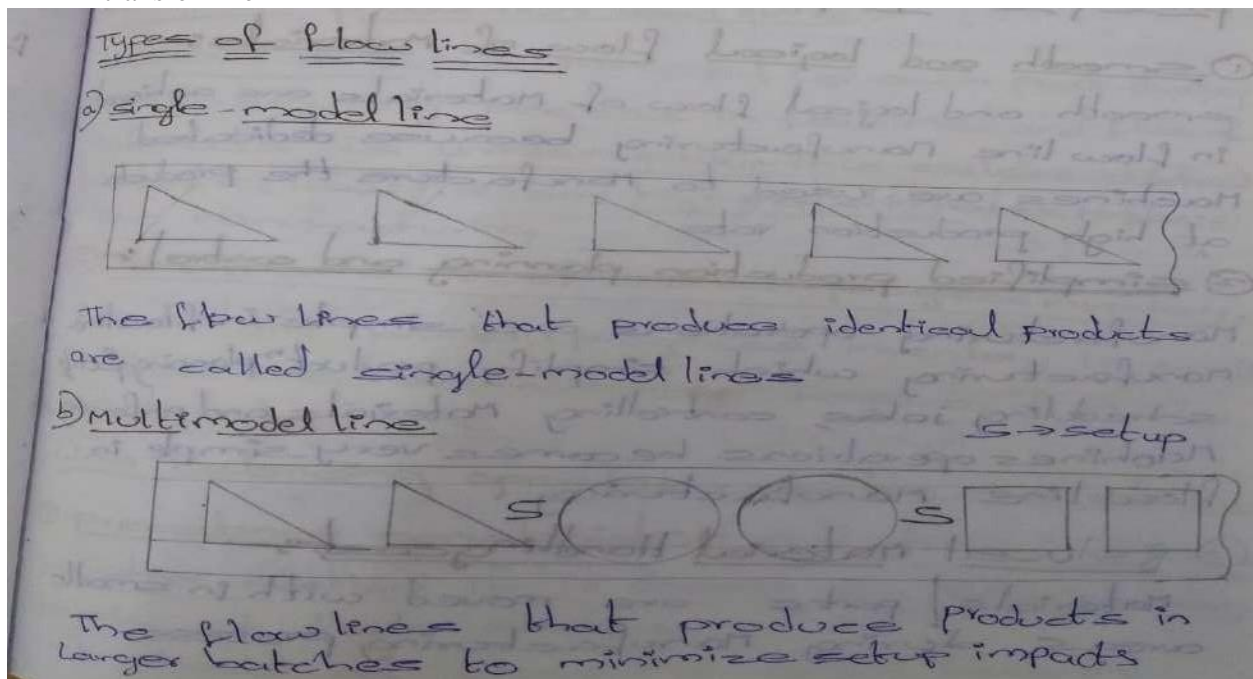 Types of flow lines
a) single-model line
The flow lines that produce identical products
are called single-model lines
b) Multimodel line
S → setup
S S
The flow lines that produce products in
Larger batches to minimize setup impacts